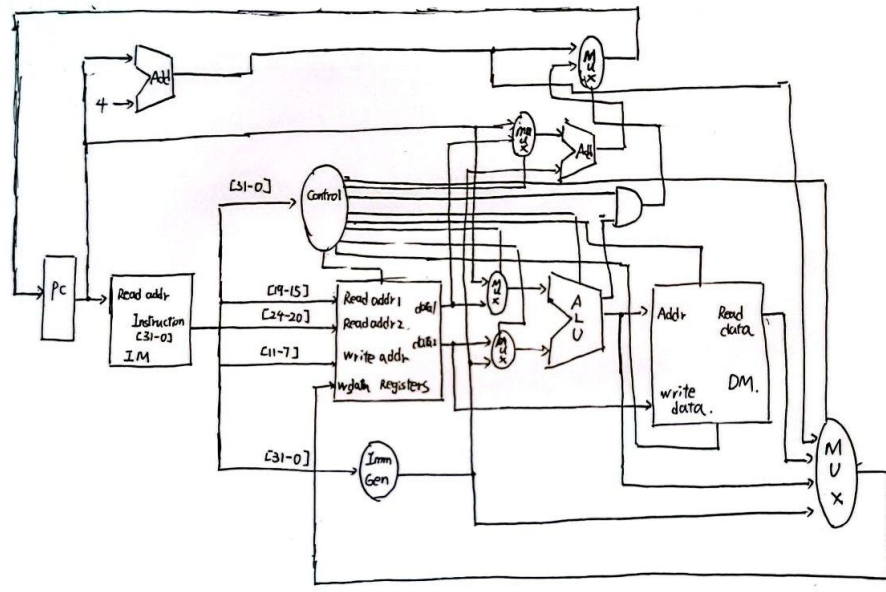 Add
4
Mux
mux
Add
[31-0]
Control
PC
Read addr
Instruction
[31-0]
IM
[19-15]
[24-20]
[11-7]
Read addr1
data1
Read addr2.
data2
write addr
wdata Registers
Mux
Mux
ALU
Addr
Read
data
write
data.
DM.
[31-0]
Imm
Gen
MUX